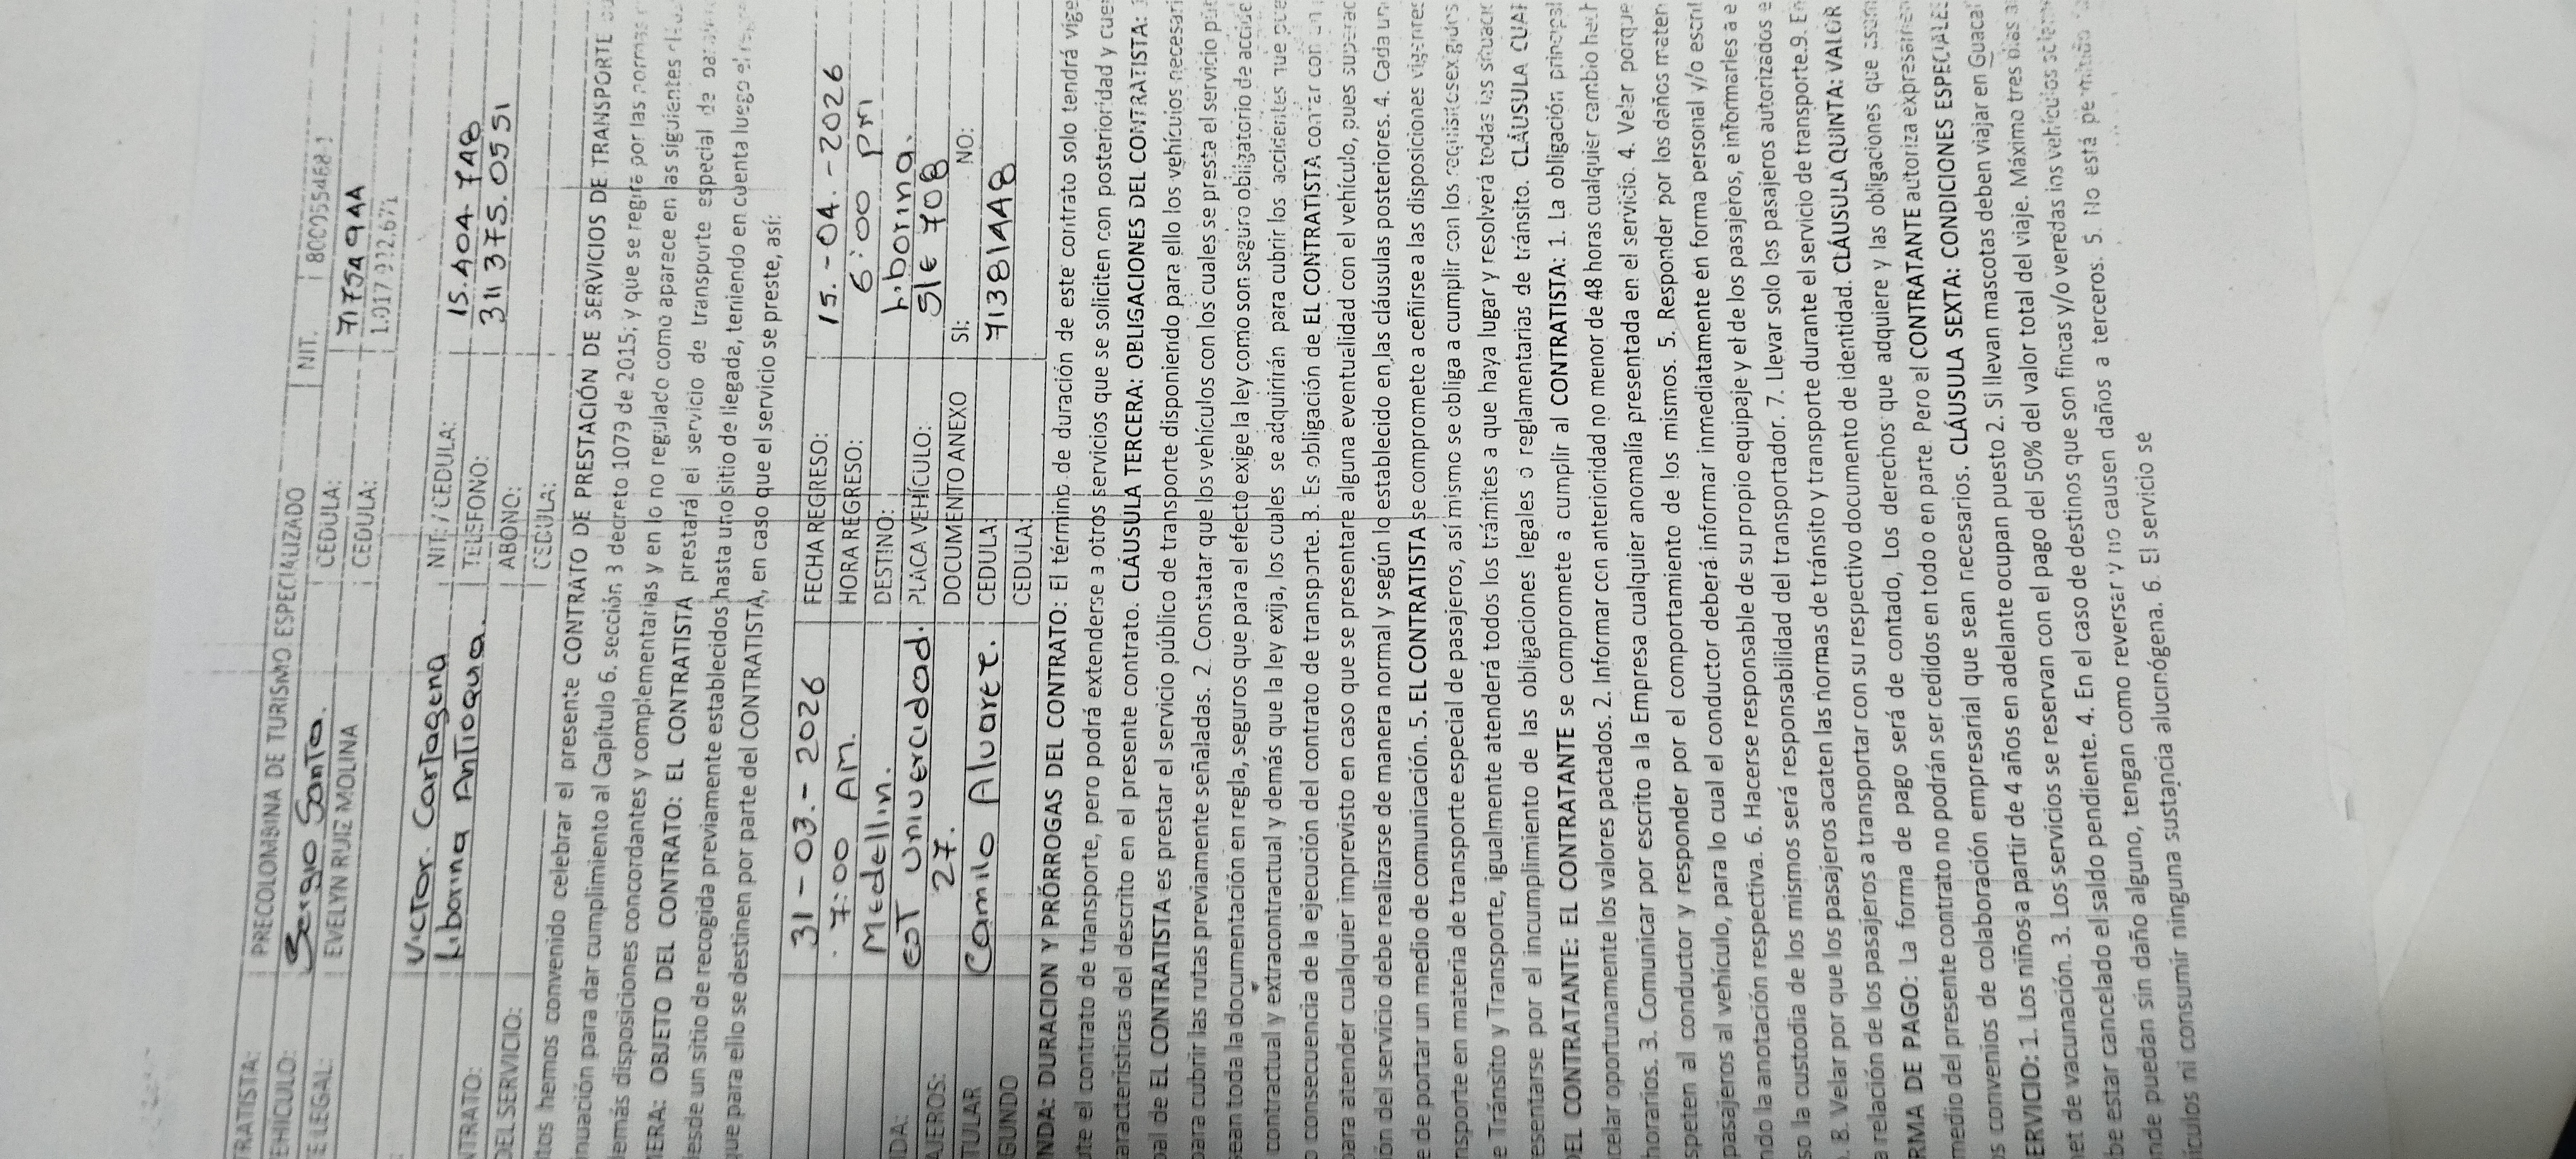 TRATISTA: PRECOLOMBINA DE TURISMO ESPECIALIZADO NIT.
EHICULO: Sergio Santa. CEDULA: 71754944
E LEGAL: EVELYN RUIZ MOLINA CEDULA: 1.017.922.671
Victor. Cartagena NIT: / CEDULA: 15.404.748
NTRATO: Liborina Antioqua. TELEFONO: 311 375.0551
DEL SERVICIO: ABONO:
CEDULA:
tos hemos convenido celebrar el presente CONTRATO DE PRESTACIÓN DE SERVICIOS DE TRANSPORTE
nuación para dar cumplimiento al Capítulo 6. sección 3 decreto 1079 de 2015; y que se regirá por las normas
emás disposiciones concordantes y complementarias y en lo no regulado como aparece en las siguientes
MERA: OBJETO DEL CONTRATO: EL CONTRATISTA prestará el servicio de transporte especial de
esde un sitio de recogida previamente establecidos hasta uno sitio de llegada, teniendo en cuenta luego el
que para ello se destinen por parte del CONTRATISTA, en caso que el servicio se preste, así:
31-03.-2026 FECHA REGRESO: 15.-04.-2026
7:00 AM. HORA REGRESO: 6:00 pm
IDA: Medellin. DESTINO: Liborina.
EOT Univercidad. PLACA VEHÍCULO: SLE 708
AJEROS: 27. DOCUMENTO ANEXO SI: NO:
TULAR Camilo Alvarez. CEDULA: 71381448
GUNDO CEDULA:
NDA: DURACION Y PRÓRROGAS DEL CONTRATO: El término de duración de este contrato solo tendrá vige
te el contrato de transporte, pero podrá extenderse a otros servicios que se soliciten con posterioridad y cue
aracterísticas del descrito en el presente contrato. CLÁUSULA TERCERA: OBLIGACIONES DEL CONTRATISTA:
pal de EL CONTRATISTA es prestar el servicio público de transporte disponiendo para ello los vehículos necesari
para cubrir las rutas previamente señaladas. 2. Constatar que los vehículos con los cuales se presta el servicio
ean toda la documentación en regla, seguros que para el efecto exige la ley como son seguro obligatorio de accide
contractual y extracontractual y demás que la ley exija, los cuales se adquirirán para cubrir los accidentes que
o consecuencia de la ejecución del contrato de transporte. 3. Es obligación de EL CONTRATISTA contar con un
para atender cualquier imprevisto en caso que se presentare alguna eventualidad con el vehículo, pues su
ión del servicio debe realizarse de manera normal y según lo establecido en las cláusulas posteriores. 4. Cada un
e de portar un medio de comunicación. 5. EL CONTRATISTA se compromete a ceñirse a las disposiciones vigentes
nsporte en materia de transporte especial de pasajeros, así mismo se obliga a cumplir con los requisitos exigidos
e Tránsito y Transporte, igualmente atenderá todos los trámites a que haya lugar y resolverá todas las situaci
esentarse por el incumplimiento de las obligaciones legales o reglamentarias de tránsito. CLÁUSULA CUAR
DEL CONTRATANTE: EL CONTRATANTE se compromete a cumplir al CONTRATISTA: 1. La obligación principal
celar oportunamente los valores pactados. 2. Informar con anterioridad no menor de 48 horas cualquier cambio
horarios. 3. Comunicar por escrito a la Empresa cualquier anomalía presentada en el servicio. 4. Velar porque
speten al conductor y responder por el comportamiento de los mismos. 5. Responder por los daños materi
pasajeros al vehículo, para lo cual el conductor deberá informar inmediatamente en forma personal y/o escrit
ndo la anotación respectiva. 6. Hacerse responsable de su propio equipaje y el de los pasajeros, e informarles
so la custodia de los mismos será responsabilidad del transportador. 7. Llevar solo los pasajeros autorizados e
. 8. Velar por que los pasajeros acaten las normas de tránsito y transporte durante el servicio de transporte. 9. En
a relación de los pasajeros a transportar con su respectivo documento de identidad. CLÁUSULA QUINTA: VALOR
RMA DE PAGO: La forma de pago será de contado, Los derechos que adquiere y las obligaciones que
medio del presente contrato no podrán ser cedidos en todo o en parte. Pero el CONTRATANTE autoriza expresamen
s convenios de colaboración empresarial que sean necesarios. CLÁUSULA SEXTA: CONDICIONES ESPECIALES
ERVICIO: 1. Los niños a partir de 4 años en adelante ocupan puesto 2. Si llevan mascotas deben viajar en Guacal
et de vacunación. 3. Los servicios se reservan con el pago del 50% del valor total del viaje. Máximo tres días
be estar cancelado el saldo pendiente. 4. En el caso de destinos que son fincas y/o veredas los vehículos
nde puedan sin daño alguno, tengan como reversar y no causen daños a terceros. 5. No está permitido
ículos ni consumir ninguna sustancia alucinógena. 6. El servicio se